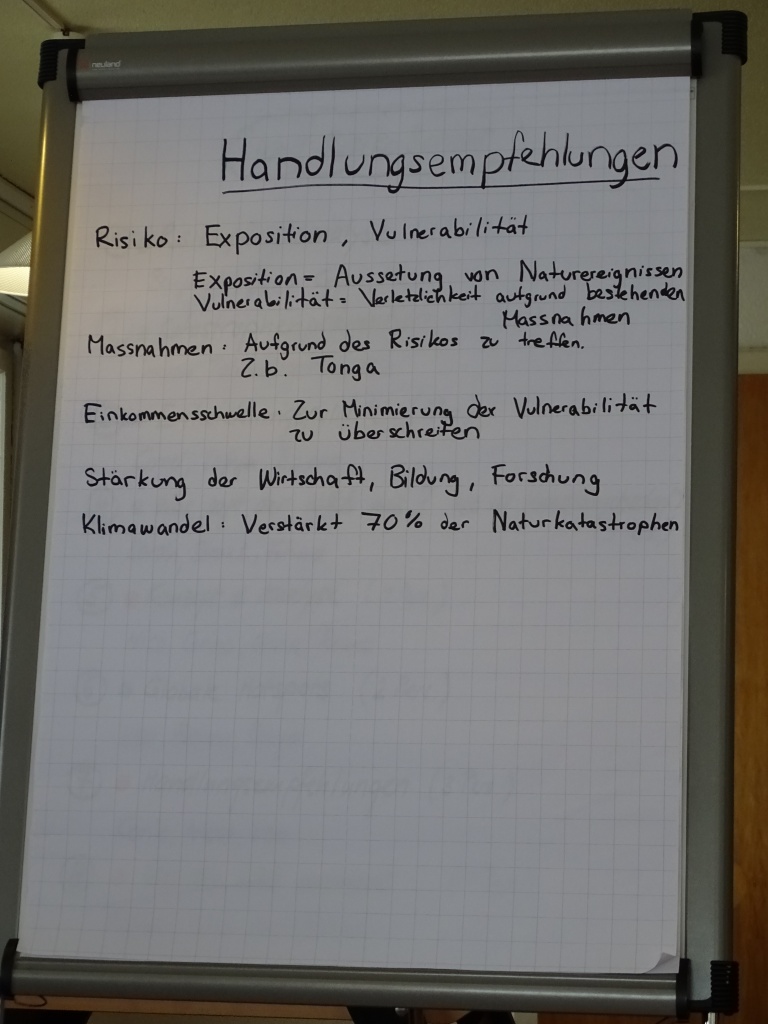 neuland
Handlungsempfehlungen
Risiko: Exposition, Vulnerabilität
Exposition = Aussetung von Naturereignissen
Vulnerabilität = Verletzlichkeit aufgrund bestehenden
Massnahmen
Massnahmen: Aufgrund des Risikos zu treffen.
Z.b. Tonga
Einkommensschwelle: Zur Minimierung der Vulnerabilität
zu überschreiten
Stärkung der Wirtschaft, Bildung, Forschung
Klimawandel: Verstärkt 70% der Naturkatastrophen